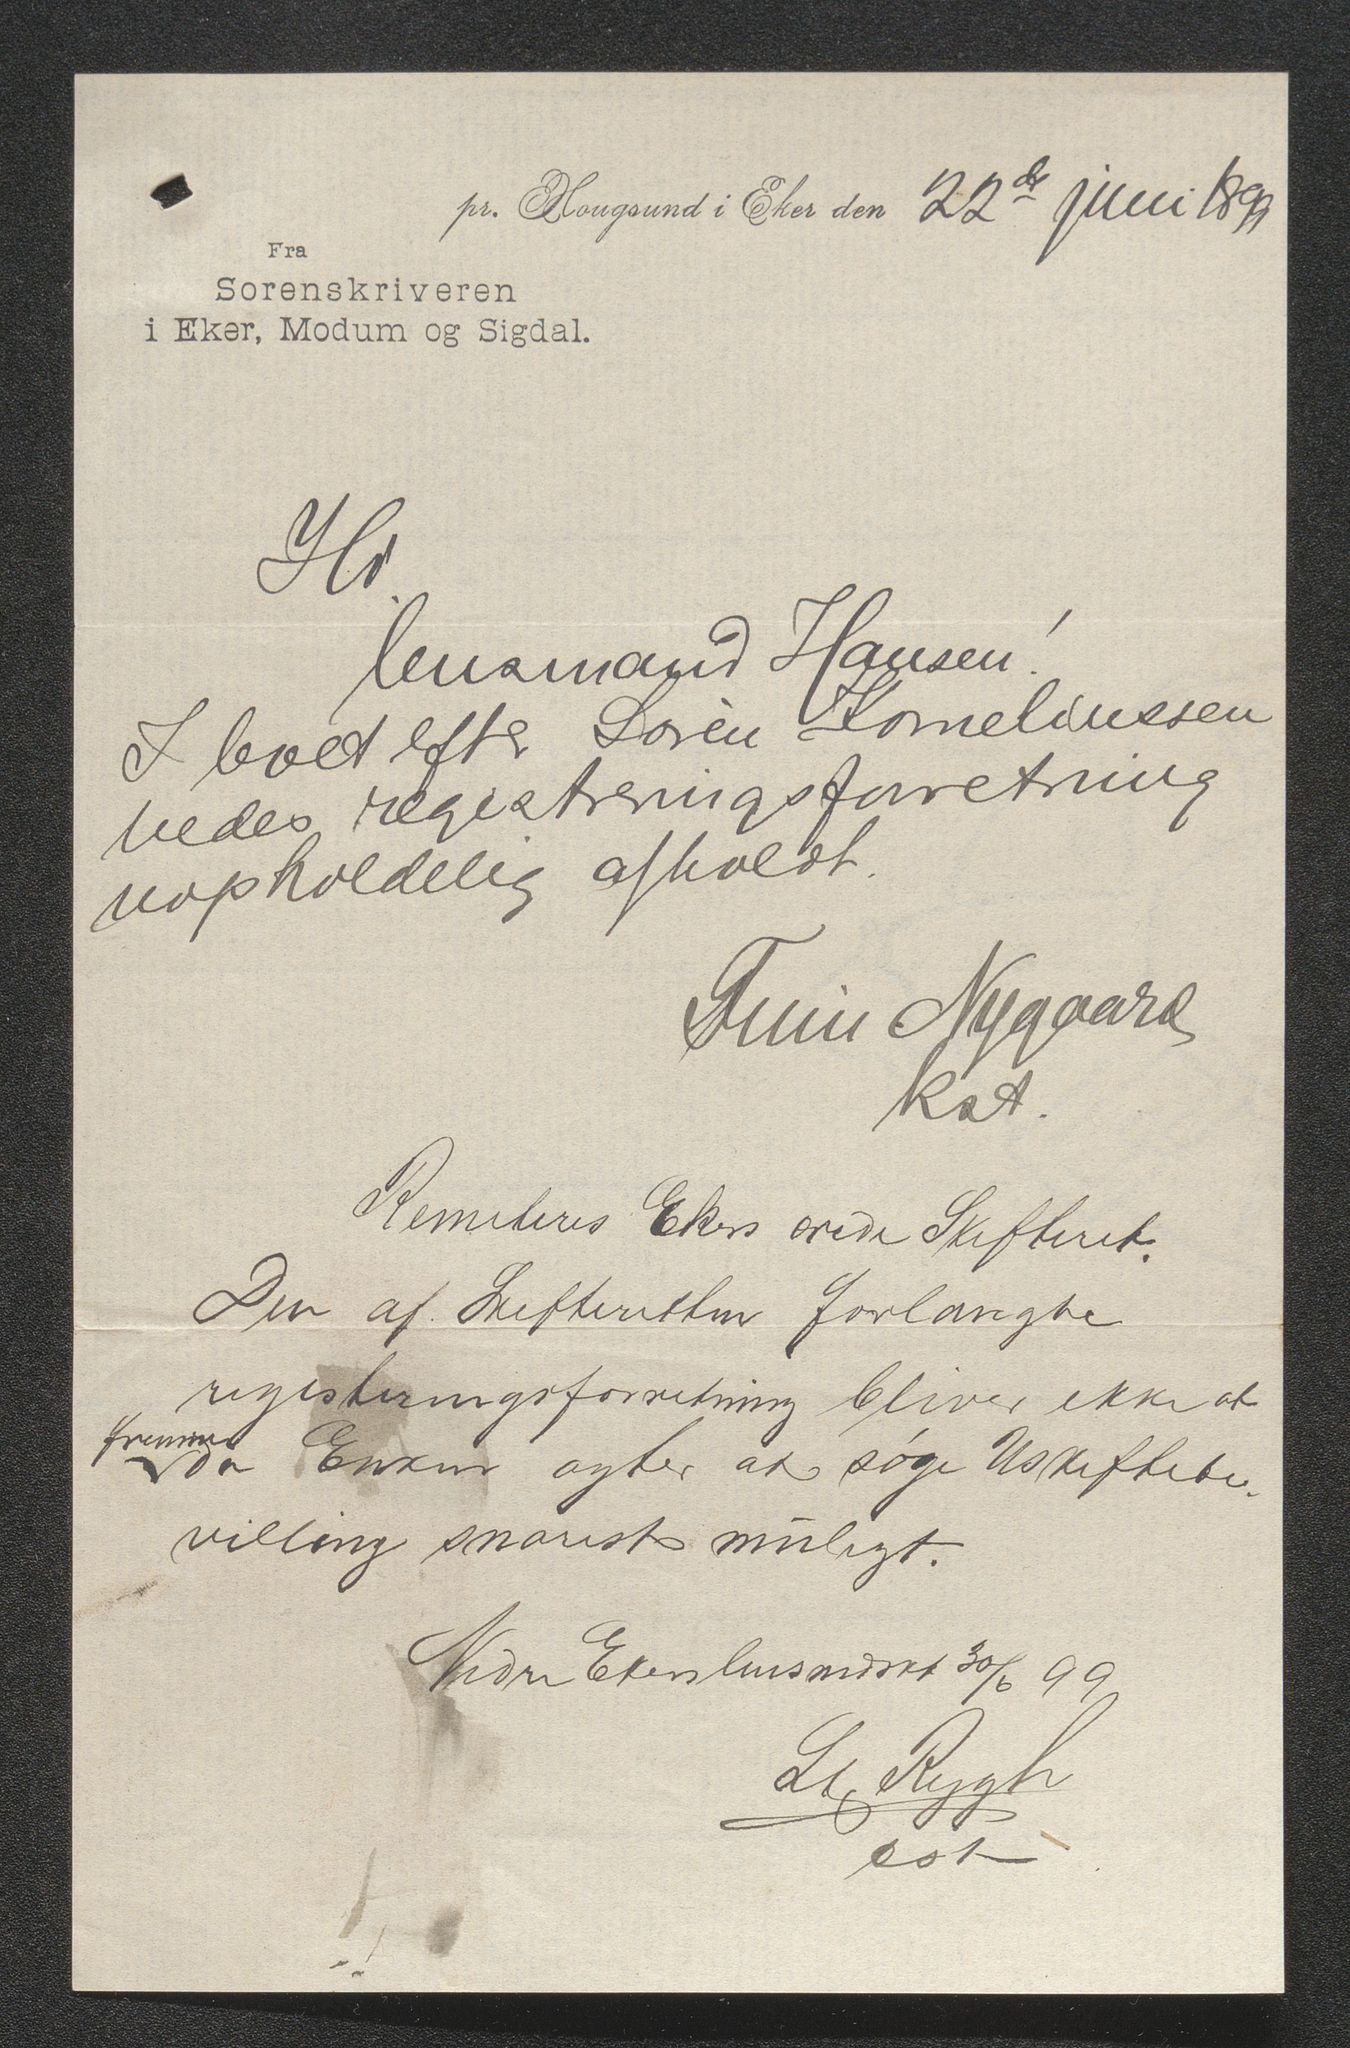 pr. Hougsund i Eker den 22de juni 1899
Fra
Sorenskriveren
i Eker, Modum og Sigdal.
Hr.
lensmand Hansen!
I boet efter Soren Korneliussen
bedes registreringsforretning
uopholdelig afholdt.
Nygaard
kst.
Remiteres Ekers ærede Skifteret.
Den af Skifteretten forlangte
registeringsforretning bliver ikke at
fremme
da Enken agter at søge Uskiftebe-
villing snarest muligt.
Nedre Ekers lensmdskt 30/6 99
Rygh
cst